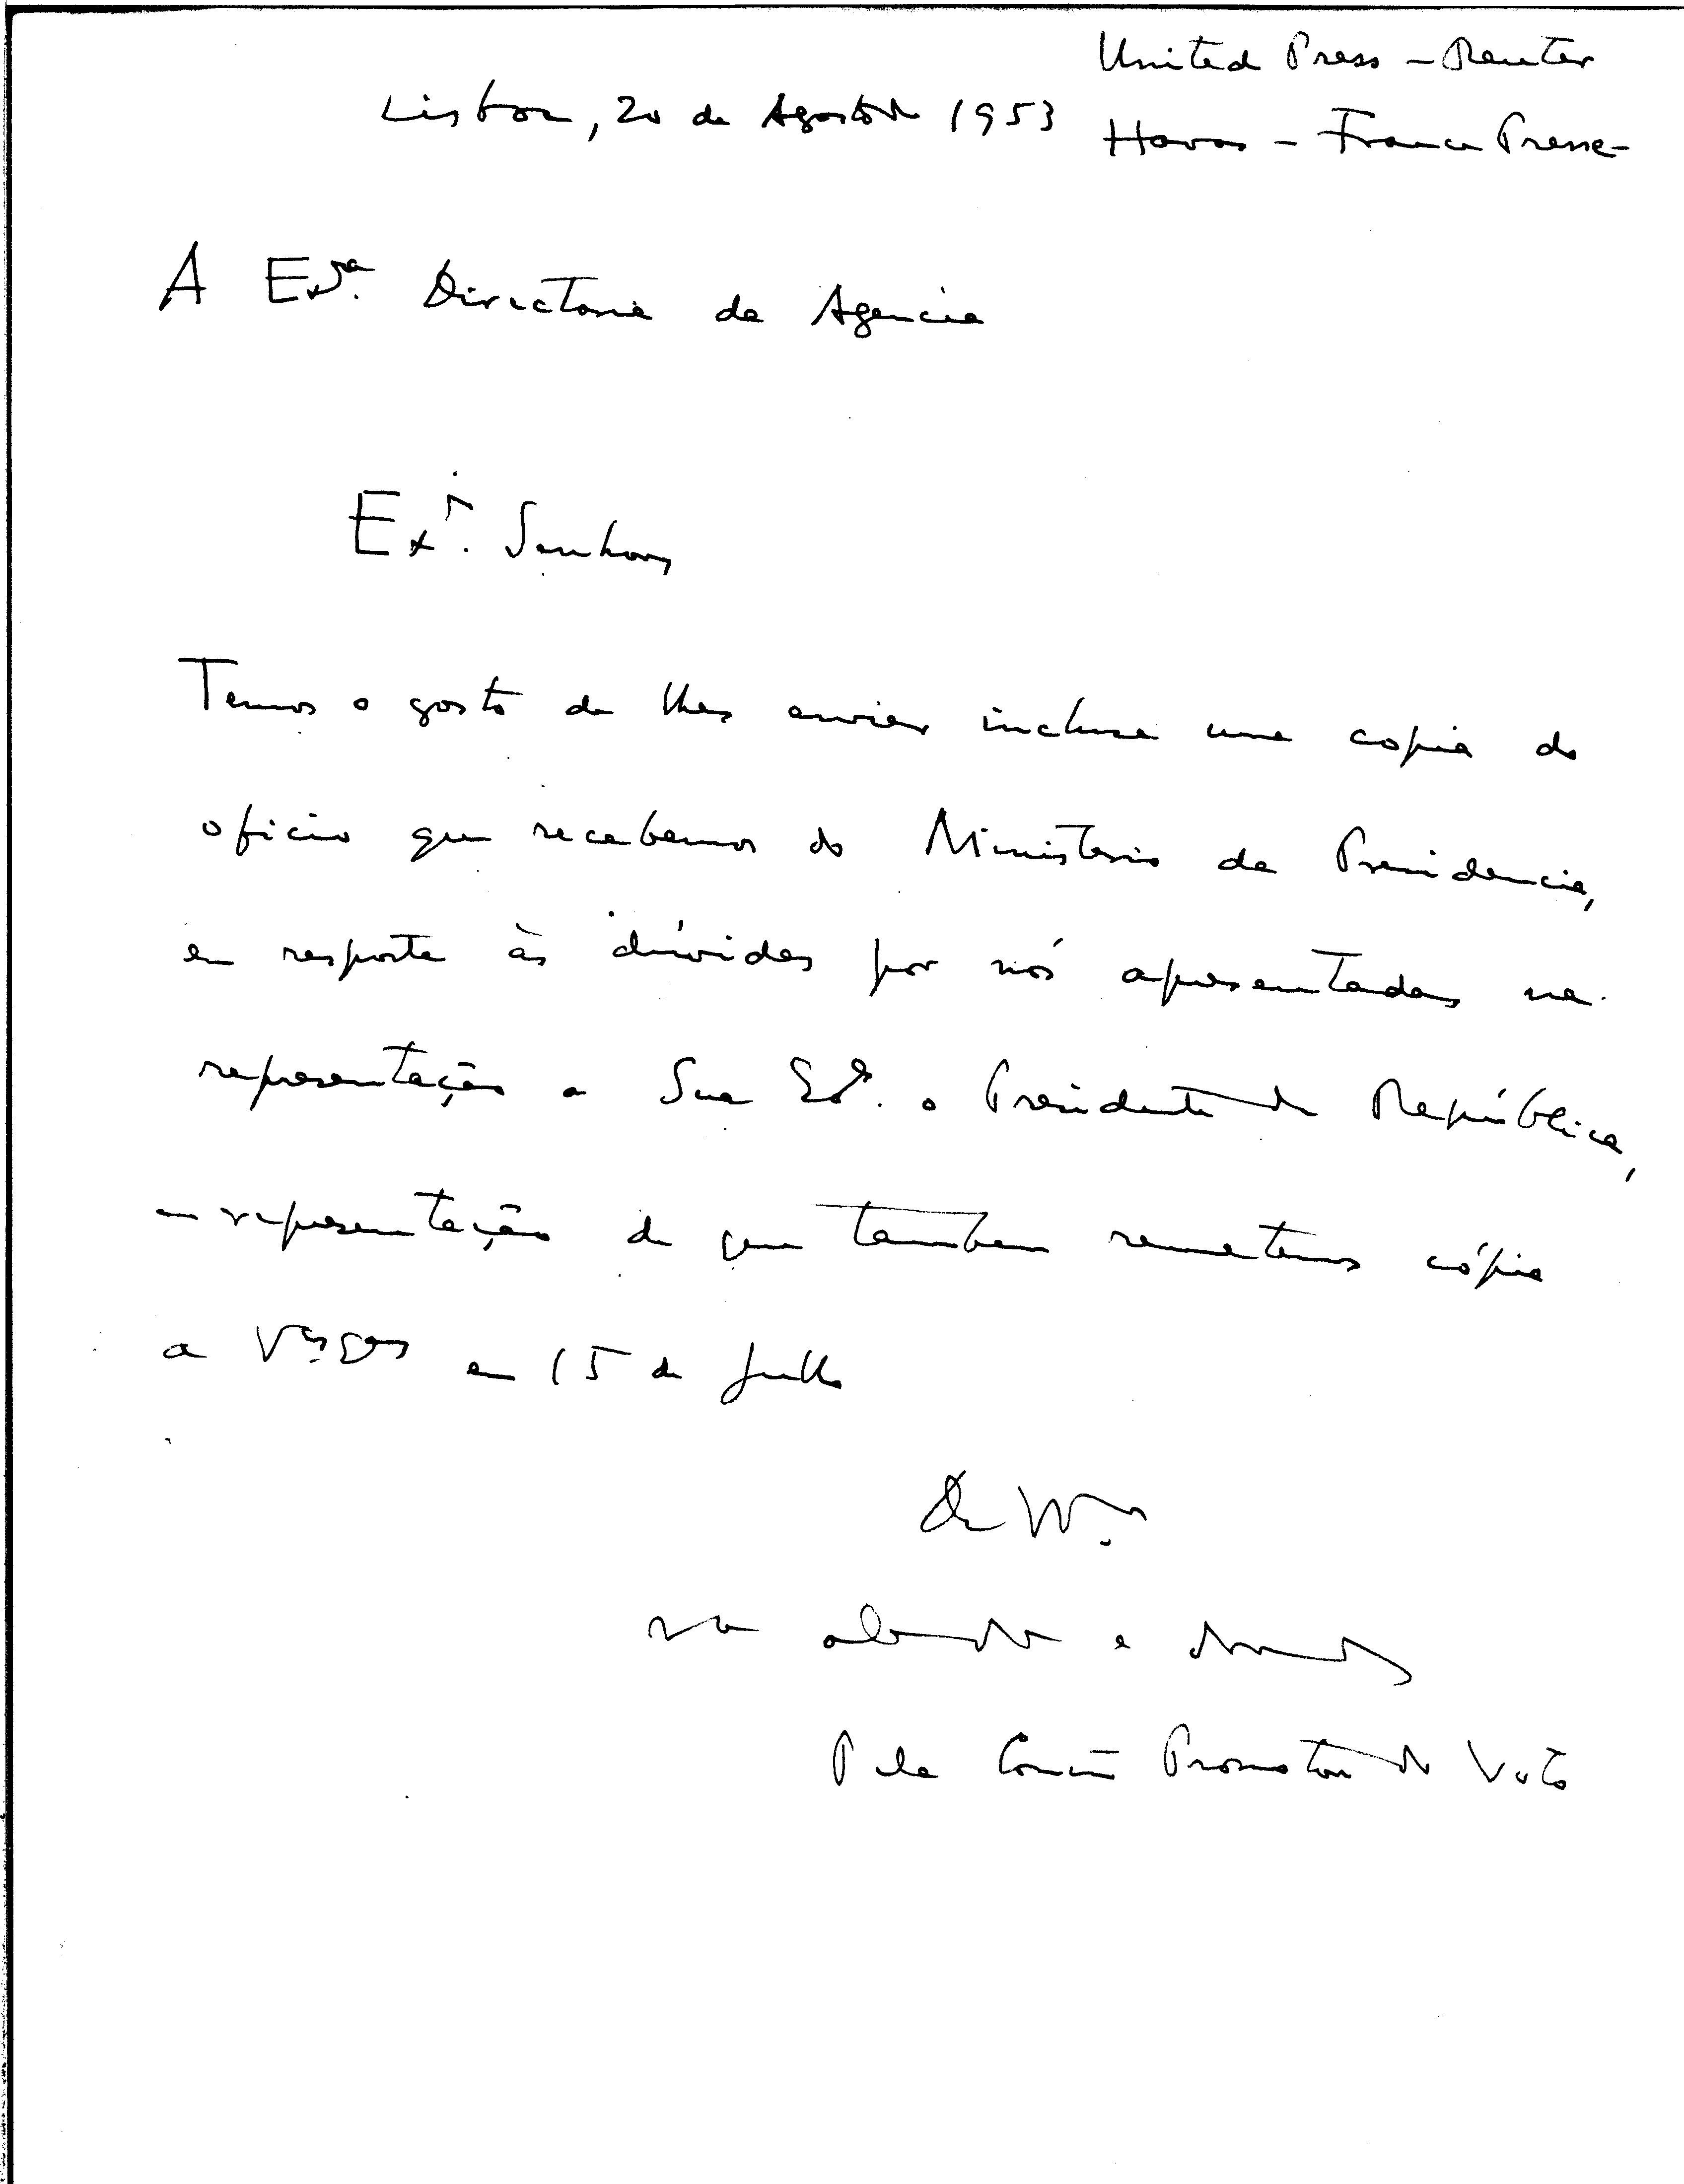 United Press - Reuter
Lisboa, 20 de Agosto de 1953
Havas - France Presse -
A Exª. Directoria da Agencia
Exs. Senhores
Temos o gosto de lhes enviar inclusa uma copia do
oficio que recebemos do Ministerio da Presidencia,
em resposta às dúvidas por nós apresentadas na
representação a Sua Exª. o Presidente da República,
- representação de que tambem remetemos cópia
a Vªs. Exªs em 15 de Julho
De V.
e
Pela Comissão Promotora do Voto